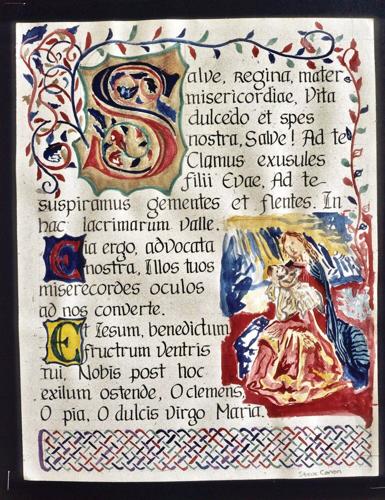 Salve, Regina, mater
misericordiae, Vita
dulcedo et spes
nostra, Salve! Ad te
Clamus exusules
filii Evae, Ad te-
suspiramus gementes et flentes. In
hac lacrimarum valle.
Eia ergo, advocata
nostra, Illos tuos
miserecordes oculos
ad nos converte.
Et Iesum, benedictum
fructrum ventris
tui, Nobis post hoc
exilum ostende, O clemens,
O pia, O dulcis virgo Maria.
Steve Canon